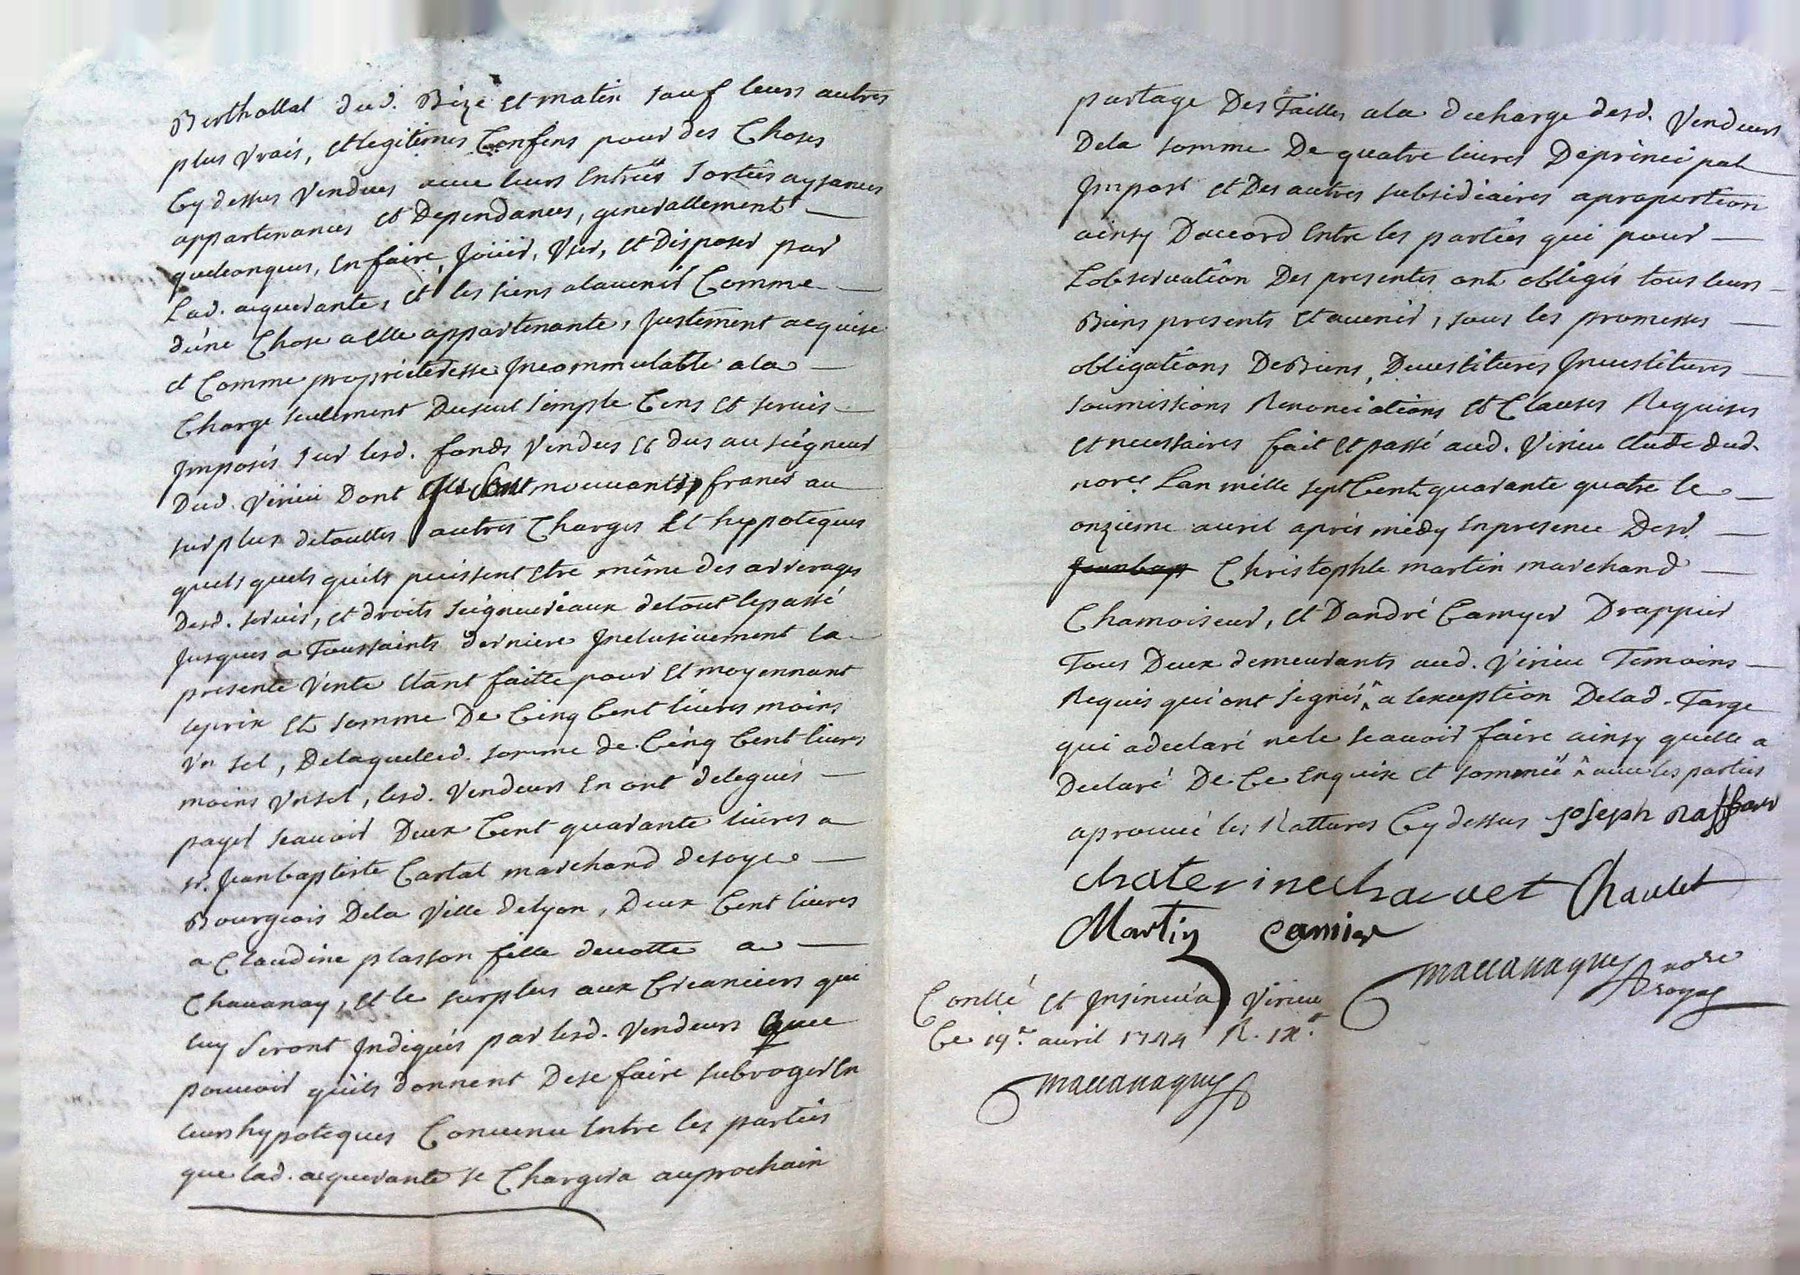 Berthollat dud. Bizé et matin sauf leurs autres
plus vrais, et legitimes Confins pour des Choses
Cy dessus Vendues avec leurs Entrées sortiës aysances
appartenances et Dependances, generallement —
quelconques, En faire, Joüir, User, et Disposer par
Lad. aquerante, et les siens alavenir Comme —
d'úne Chose a elle appartenante, justement acquise
et Comme proprieteresse Incommutable ala —
Charge seulement Du seul simple Cens et servis —
Imposés sur lesd. fonds Vendus et dus au seigneur
Dud. Virieu Dont Ils sont mouvants, francs au —
surplus de touttes autres Charges Et hypoteques
quels quels quils puissent etre même des arrerages
Desd. servis, et droits seigneuriaux de tout lepassé
Jusques a Toussaints derniere Inclusivement la —
presente Vente etant faitte pour et moyennant
leprix et somme De Cinq Cent livres moins
Vn sel, Delaquelled. somme de Cinq Cent livres
moins Vn sel, lesd. Vendeurs En ont delegués —
payer scavoir Deux Cent quarante livres a —
sr. Jeanbaptiste Cartal marchand desoye —
Bourgeois Dela Ville delyon, Deux Cent livres
a Claudine plasson fille devotte a —
Chavanay, et le surplus aux Creanciers qui
luy seront Indiqués par lesd. Vendeurs avec
pouvoir quils donnent Dese faire subroger En
leurs hypoteques Convenu Entre les partiës
que lad. acquerante se Chargera auprochain
partage Des Tailles ala decharge desd. Vendeurs
Dela somme De quatre livres Deprincipal —
Impost et Des autres subsidiaires aproportion
ainsy D'accord Entre les partiës qui pour —
L'observatiôn Des presentes ont obligés tous leurs —
Biens presents et avenir, sous les promesses —
obligatiôns DeBiens, Devestitures Investitures —
soumissions Renonciations et Clauses Requises
et necessaires fait et passé aud. Virieu Etude dud.
nore. L'an mille sept Cent quarante quatre le —
onzieme avril après midy En presence Desr. —
Jeanbap Christophle martin marchand —
Chamoiseur, et D'andré Camyer Drappier
Tous Deux demeurants aud. Virieu Temoins —
Requis qui ont signés ^ a lexception Delad. Targe
qui adeclaré nele scavoir faire ainsy quelle a
Declaré De Ce Enquise et sommée ^ avec les partiës
aprouvé les Ratures Cy dessus joseph Raffard
chaterine chavuet Chavlet
Martin camier
Maccanaguy nore royal
Conllé et Insinué a Virieu
Ce 19e. avril 1744 R. 12s.
Maccanaguy